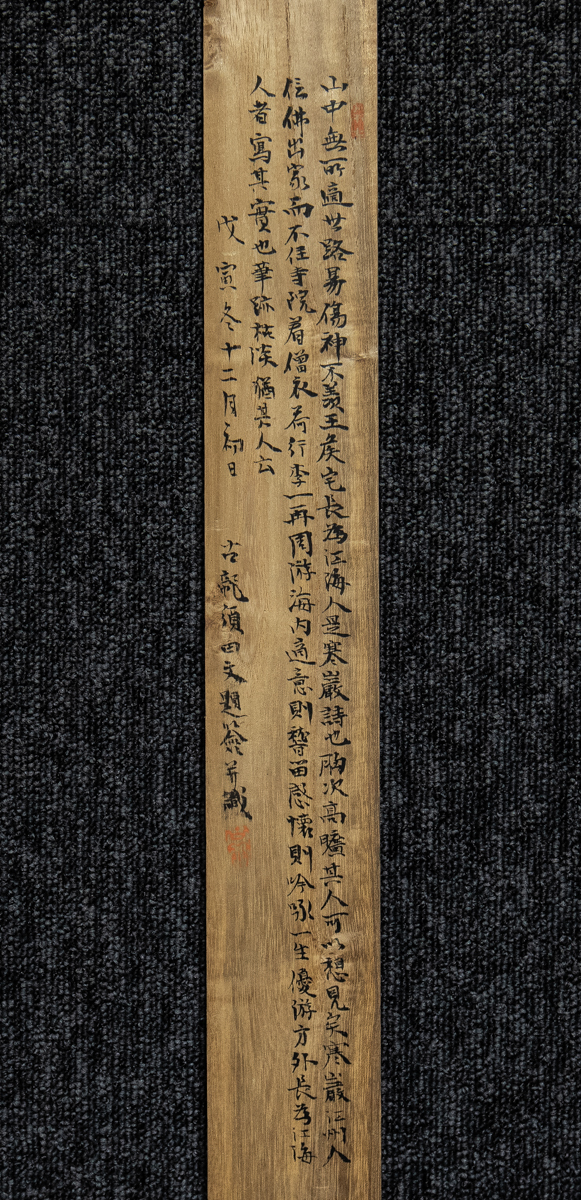 山中無所適世路易傷神不羨王侯宅長為江海人是寒巖詩也胸次高曠其人可以想見矣寒巖江州人
信佛出家而不住寺院着僧衣荷行李一再周游海内適意則暫留感懷則吟咏一生優游方外長為江海
人者寫其實也筆跡枯淡猶其人云
戊寅冬十二月初日
古龍須四文題簽并識